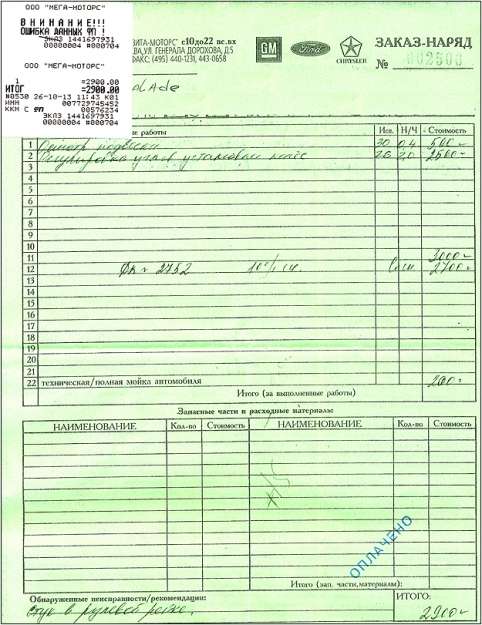 ООО "МЕГА-МОТОРС"
ВНИМАНИЕ!!!
ОШИБКА ДАННЫХ ФП !
ЭКЛЗ 1441697931
00000004 #000704
ООО "МЕГА-МОТОРС"
1 =2900.00
ИТОГ =2900.00
#0530 26-10-13 11:43 К01
ИНН 007729745452
ККМ С ФП 00576234
ЭКЛЗ 1441697931
00000004 #000704
ВИТА-МОТОРС" с10до22 вс.вх
ВА, УЛ. ГЕНЕРАЛА ДОРОХОВА, Д.5
ФАКС: (495) 440-1231, 443-0658
GM
Ford
CHRYSLER
ЗАКАЗ-НАРЯД
№ 002500
LADE
работы Исп. Н/Ч Стоимость
1 Осмотр подвески 30 0,4 500
2 Регулировка углов установки колёс 20 2,0 2500
3
4
5
6
7
8
9
10
11 3000
12 ФК № 2752 10% ск. 2700
13
14
15
16
17
18
19
20
21
22 техническая/полная мойка автомобиля 200
Итого (за выполненные работы)
Запасные части и расходные материалы
НАИМЕНОВАНИЕ Кол-во Стоимость НАИМЕНОВАНИЕ Кол-во Стоимость
ОПЛАЧЕНО
Итого (зап. части,материалы):
Обнаруженные неисправности/рекомендации:
Стук в рулевой рейке.
ИТОГО:
2900